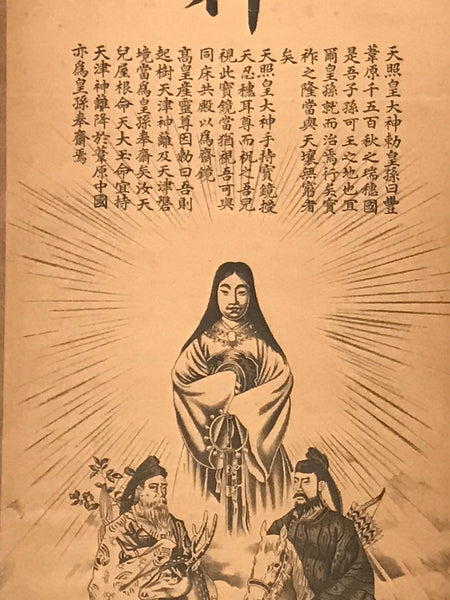 天照皇大神勅皇孫曰豐
葦原千五百秋之瑞穗國
是吾子孫可王之地也宜
爾皇孫就而治焉行矣寶
祚之隆當與天壤無窮者
矣
天照皇大神手持寶鏡授
天忍穗耳尊而祝之吾兒
視此寶鏡當猶視吾可與
同床共殿以爲齋鏡
高皇產靈尊因勅曰吾則
起樹天津神籬及天津磐
境當爲皇孫奉齋矣汝天
兒屋根命天太玉命宜持
天津神籬降於葦原中國
亦爲皇孫奉齋焉